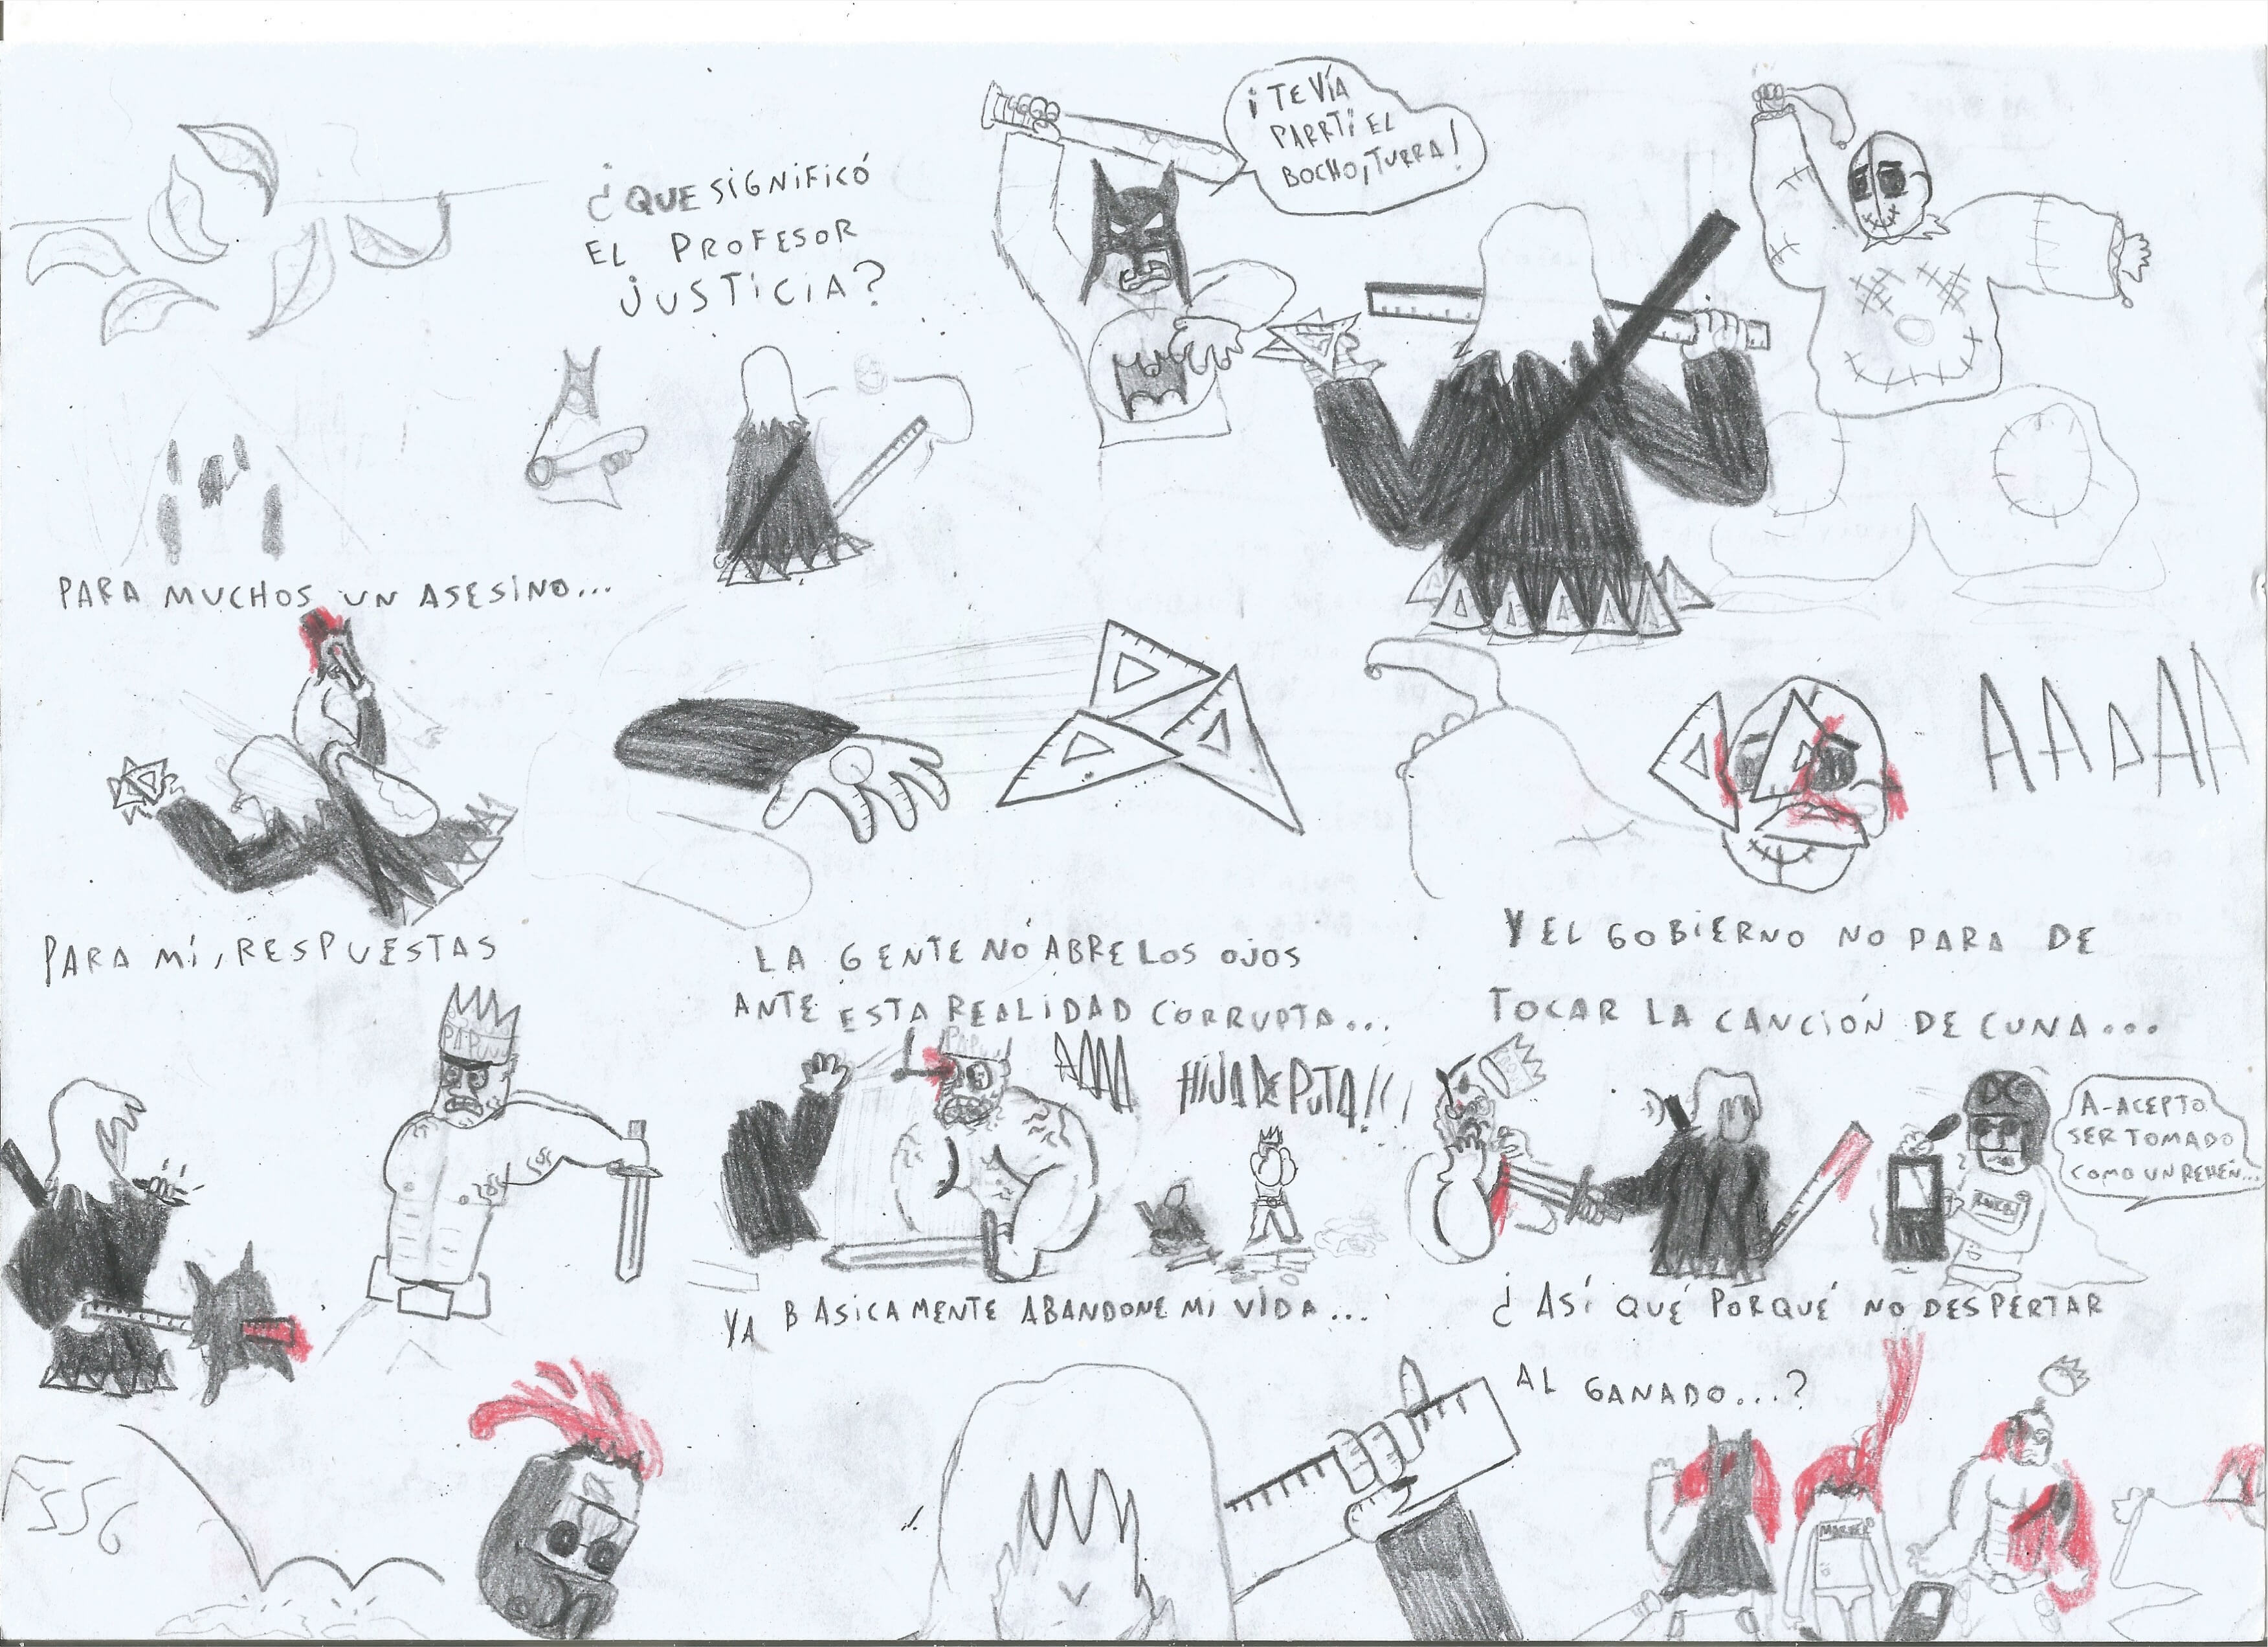 ¿QUE SIGNIFICÓ
EL PROFESOR
JUSTICIA?
¡TE VÍA
PARRTI EL
BOCHO, TURRA!
PARA MUCHOS UN ASESINO...
AAAAA
PARA MÍ, RESPUESTAS
LA GENTE NO ABRE LOS OJOS
ANTE ESTA REALIDAD CORRUPTA...
AAAA
HIJA DE PUTA!!!
Y EL GOBIERNO NO PARA DE
TOCAR LA CANCIÓN DE CUNA...
DC
A-ACEPTO
SER TOMADO
COMO UN REHÉN...
YA BASICAMENTE ABANDONE MI VIDA...
¿ASÍ QUÉ PORQUÉ NO DESPERTAR
AL GANADO...?